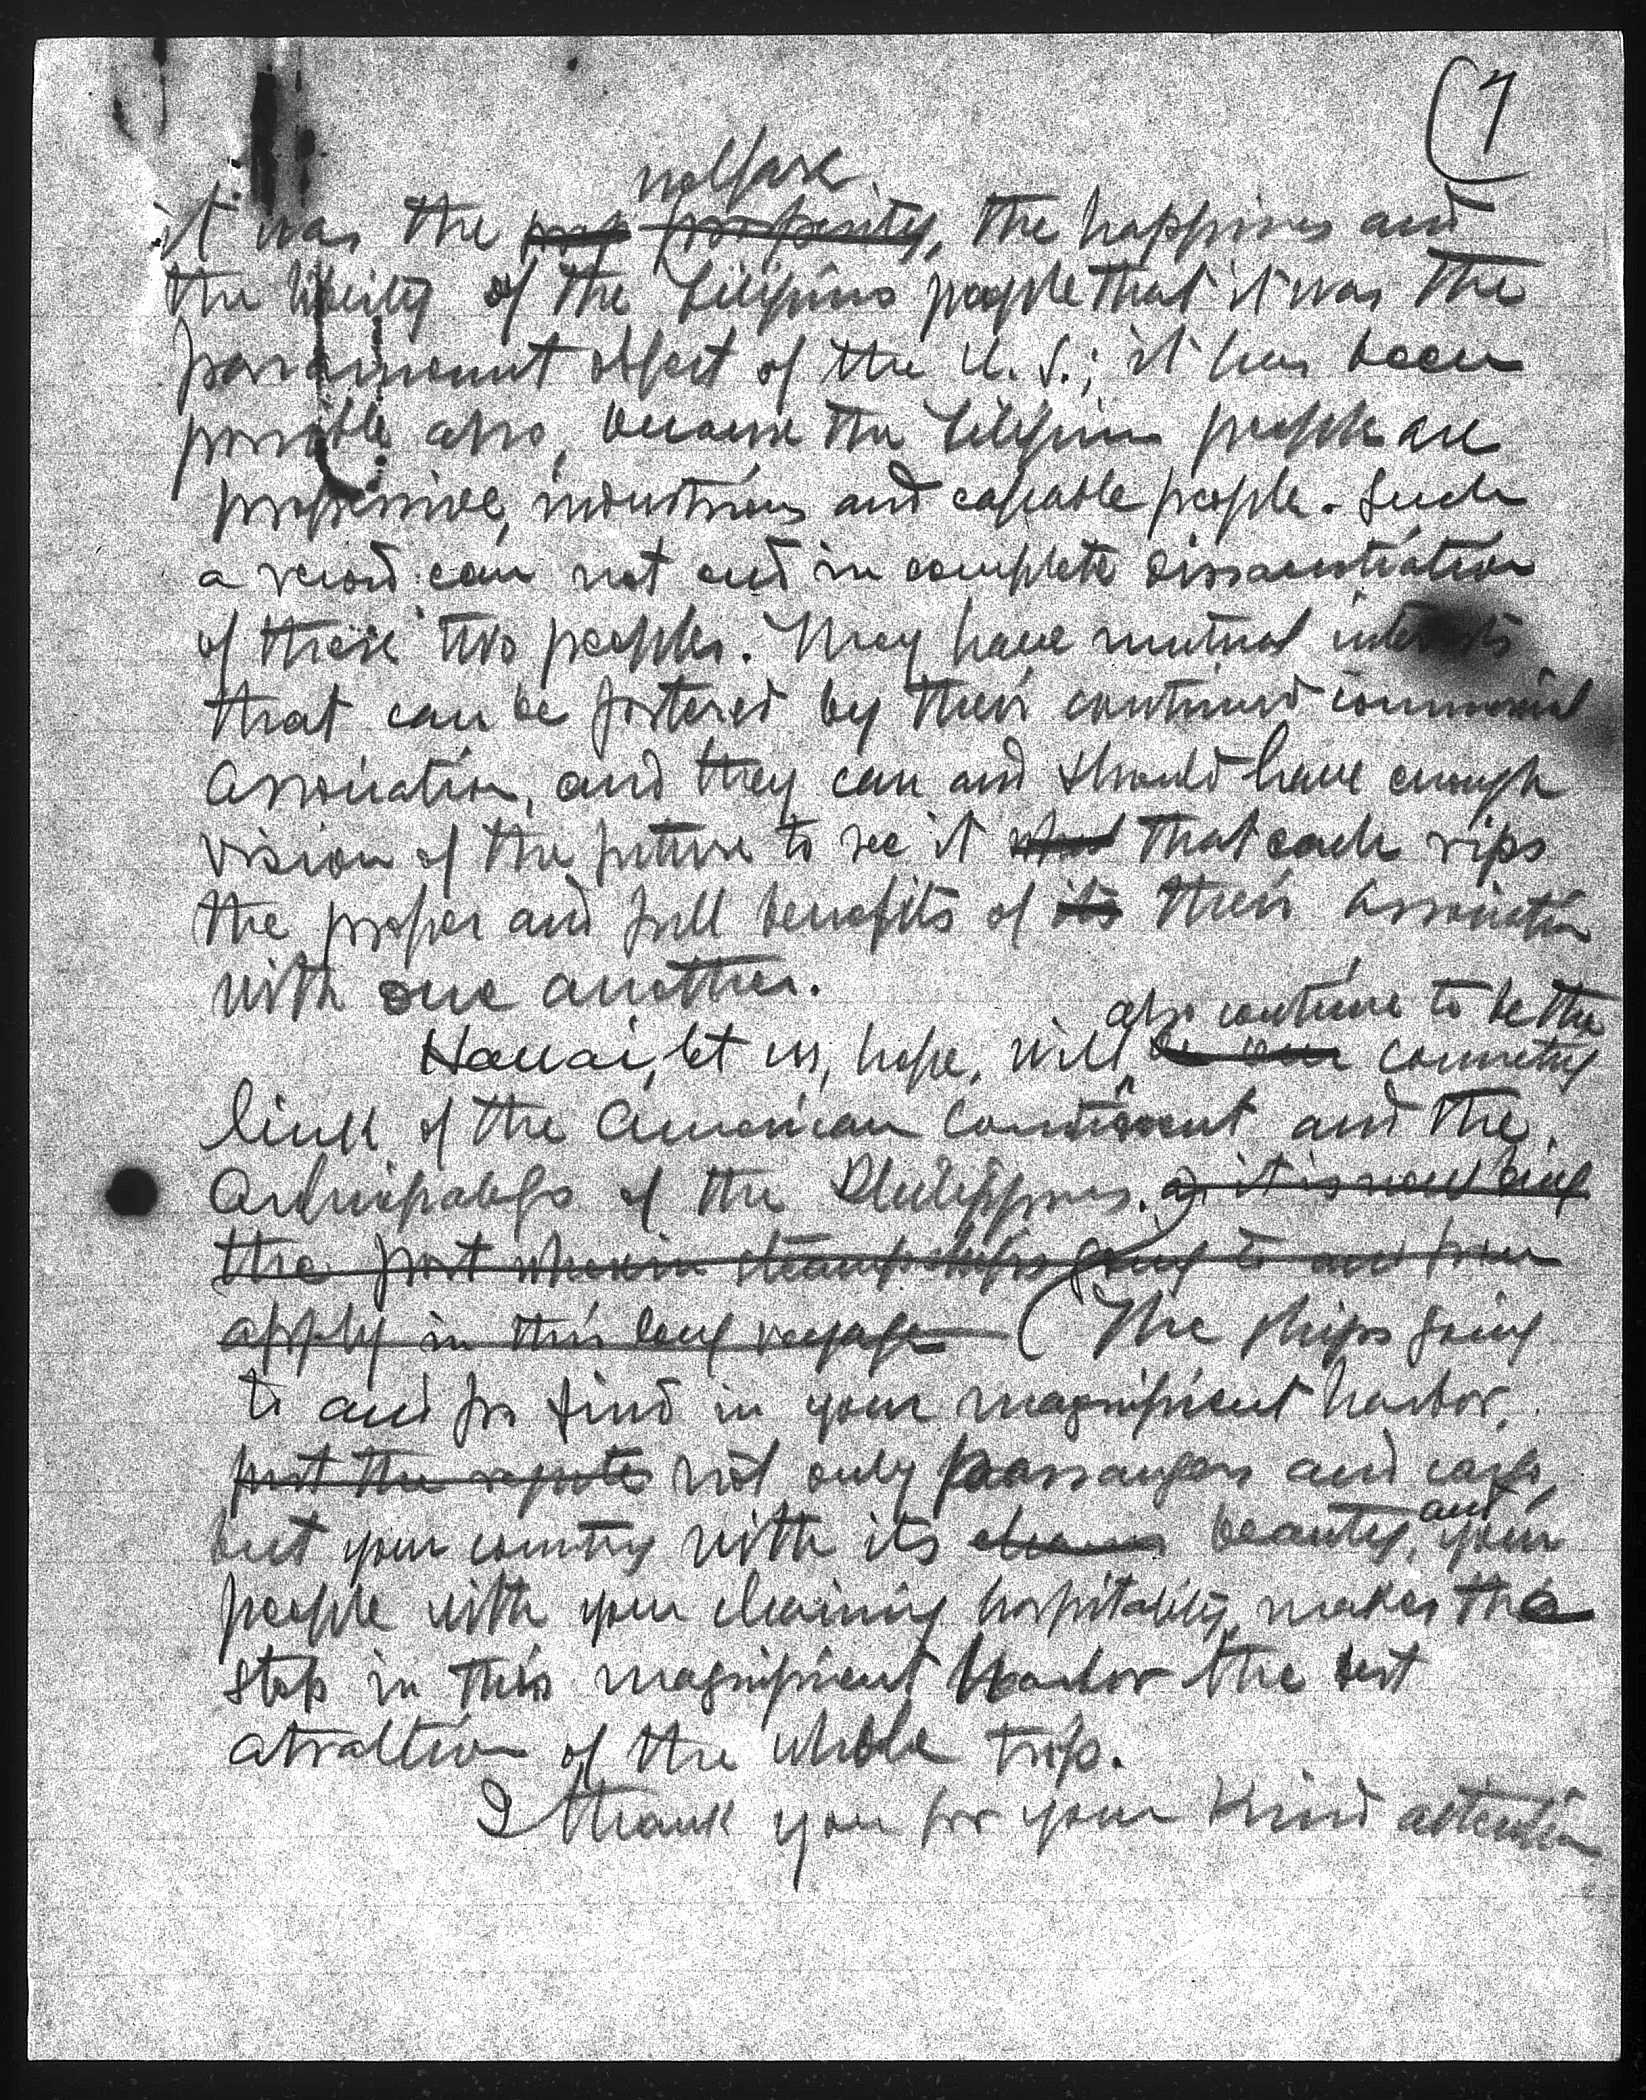 (7
welfare
it was the prosperity, the happines and
the liberty of the Filipino people that it was the
paramount object of the U. S.; it has been
possible also, because the Filipino people are
progressive, industrious and capable people. Such
a record can not end in complete
of these two peoples. They have mutual interests
that can be fostered by their continued commercial
association, and they can and should have enough
vision of the future to see it that each rips
the proper and full benefits of its their association
with one another.
also continue to be the
Hawai, let us, hope, will be our
link of the American Continent and the
Archipalego of the Philippines. as it is now being
the port wherein steamships going to and from
apply in this long voyage (The ships going
to and fro find in your magnificent harbor,
port the not only passangers and cargo,
and
but your country with its charms beauty, your
people with your charming hospitality, makes the
stop in this magnificent Harbor the best
atraction of the whole trip.
I thank you for your kind attention